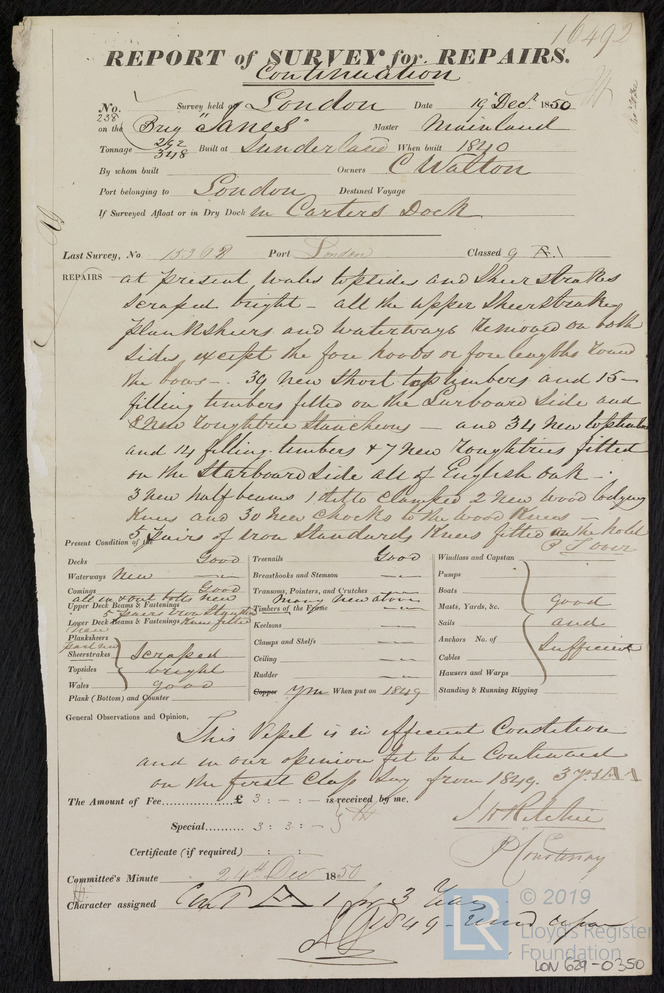 16492
REPORT of SURVEY for REPAIRS.
Continuation
No. 238 Survey held at London Date 19 Decr. 1850
on the Brig "Janes" Master Mainland
Tonnage 292 348 Built at Sunderland When built 1840
By whom built Owners C Walton
Port belonging to London Destined Voyage
If Surveyed Afloat or in Dry Dock in Carters Dock
Last Survey, No 15368 Port London Classed 9 A.1
REPAIRS at present, wales topsides and Sheerstrakes
scraped bright - all the upper Sheerstrakes
planksheers and waterways removed on both
sides, except the fore hoods or fore lengths round
the bows -. 39 new short top timbers and 15-
filling timbers fitted on the Larboard Side and
8 new roughtree Stancheons - and 34 new toptimbers
and 14 filling timbers & 7 new roughtrees fitted
on the Starboard Side all of English Oak -
3 new half beams 1 ditto clamped 2 new wood lodging
Knees and 30 new chocks to the wood Knees -
5 pairs of iron Standards Knees fitted in the hold
P.T. over
Present Condition of the
Decks Good
Waterways New
Comings Good
all in & out bolts new
Upper Deck Beams & Fastenings
5 pairs iron
Lower Deck Beams & Fastenings Knees fitted
new
Planksheers
part new
Sheerstrakes scraped
Topsides bright
Wales good
Plank (Bottom) and Counter
Treenails Good
Breasthooks and Stemson
Transoms, Pointers, and Crutches
Many new above
Timbers of the Frame
Keelsons
Clamps and Shelfs
Ceiling
Rudder
Copper YM When put on 1849
Windlass and Capstan
Pumps
Boats
Masts, Yards, &c. good
Sails and
Anchors No. of Sufficient
Cables
Hausers and Warps
Standing & Running Rigging
General Observations and Opinion,
This Vessel is in efficient Condition
and in our opinion fit to be Continued
on the first Class Say from 1849. 3 Yrs A 1
The Amount of Fee £ 3 : - : - is received by me,
Special 3 : 3 : -
J H Ritchie
P Courtenay
Certificate (if required) : :
Committee's Minute 24th Dec 1850
Character assigned Contd A 1 for 3 Years
1849
© 2019
LR
Lloyd's Register
Foundation
LON 629-0350